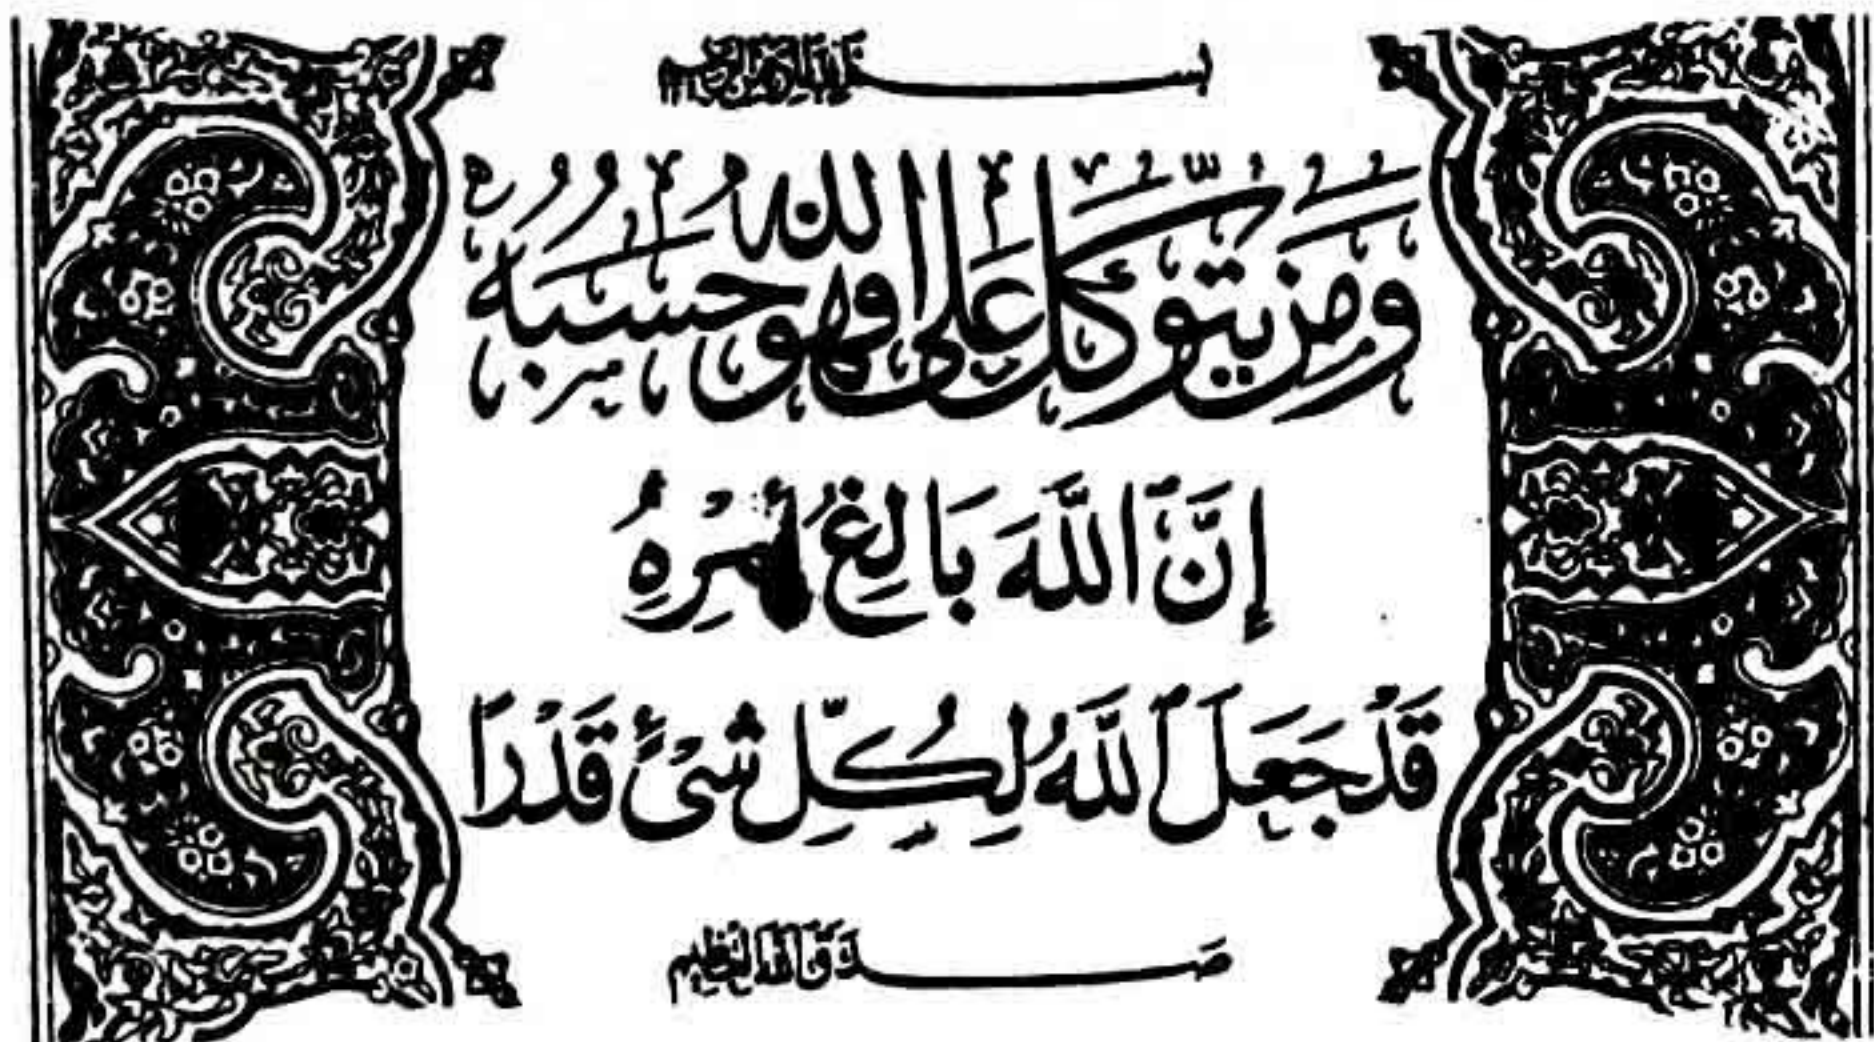 بسم الله الرحمن الرحيم
وَمَنْ يَتَوَكَّلْ عَلَى اللهِ فَهُوَ حَسْبُهُ
إِنَّ ٱللَّهَ بَالِغُ أَمْرِهِ
قَدْ جَعَلَ ٱللَّهُ لِكُلِّ شَىْءٍ قَدْرًا
صدق الله العظيم